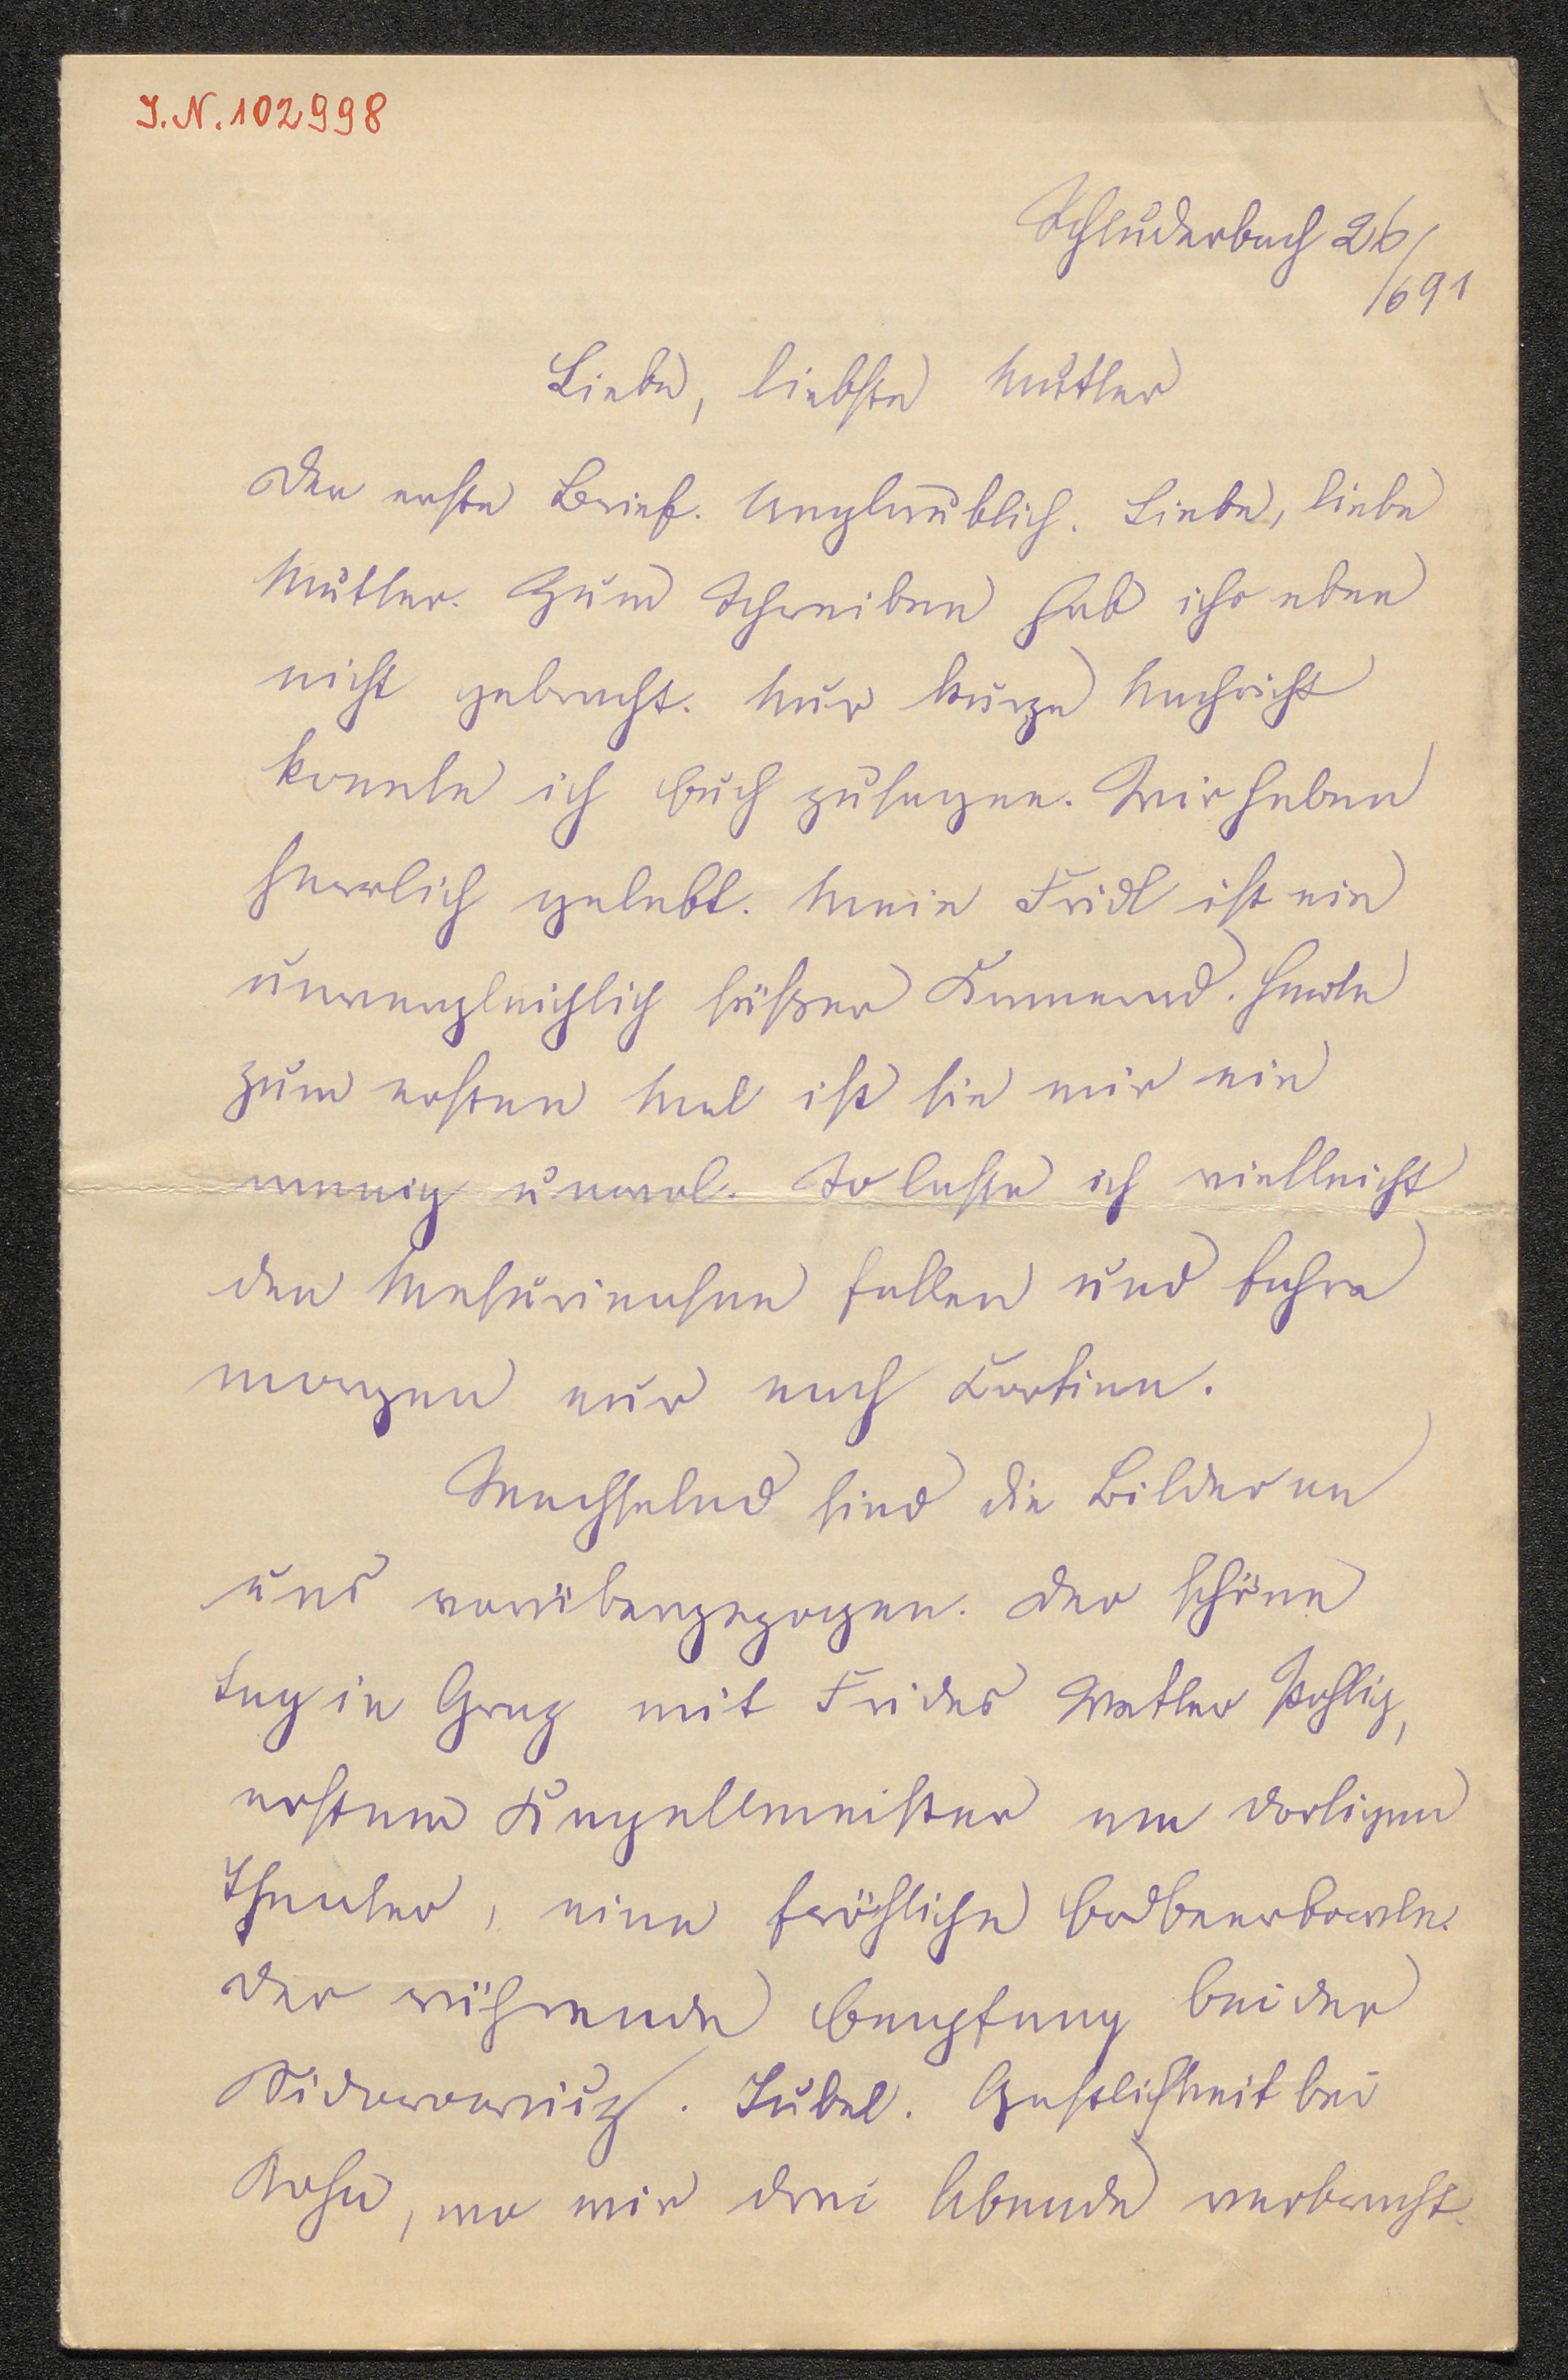 J.N. 102998
Schluderbach 26/
/6 91
Liebe, liebste Mutter
Der erste Brief. Unglaublich. Liebe, liebe
Mutter. Zum Schreiben hab ichs eben
nicht gebracht. Nur kurze Nachricht
konnte ich Euch zusagen. Wir haben
herrlich gelebt. Mein Fridl ist ein
unvergleichlich süßer Kamerad. Heute
zum ersten Mal ist sie mir ein
wenig unwol. So lasse ich vielleicht
den Mesurinasee fallen und fahre
morgen nur nach Cortina.
Wechselnd sind die Bilder an
uns vorübergezogen. Der schöne
Tag in Graz mit Frides Vetter Pohlig,
erstem Kapellmeister am dortigen
Theater, eine fröhliche Erdbeerbowle.
Der rührende Empfang bei der
Jubel. Gastlichkeit bei
, wo wir drei Abende verbracht.